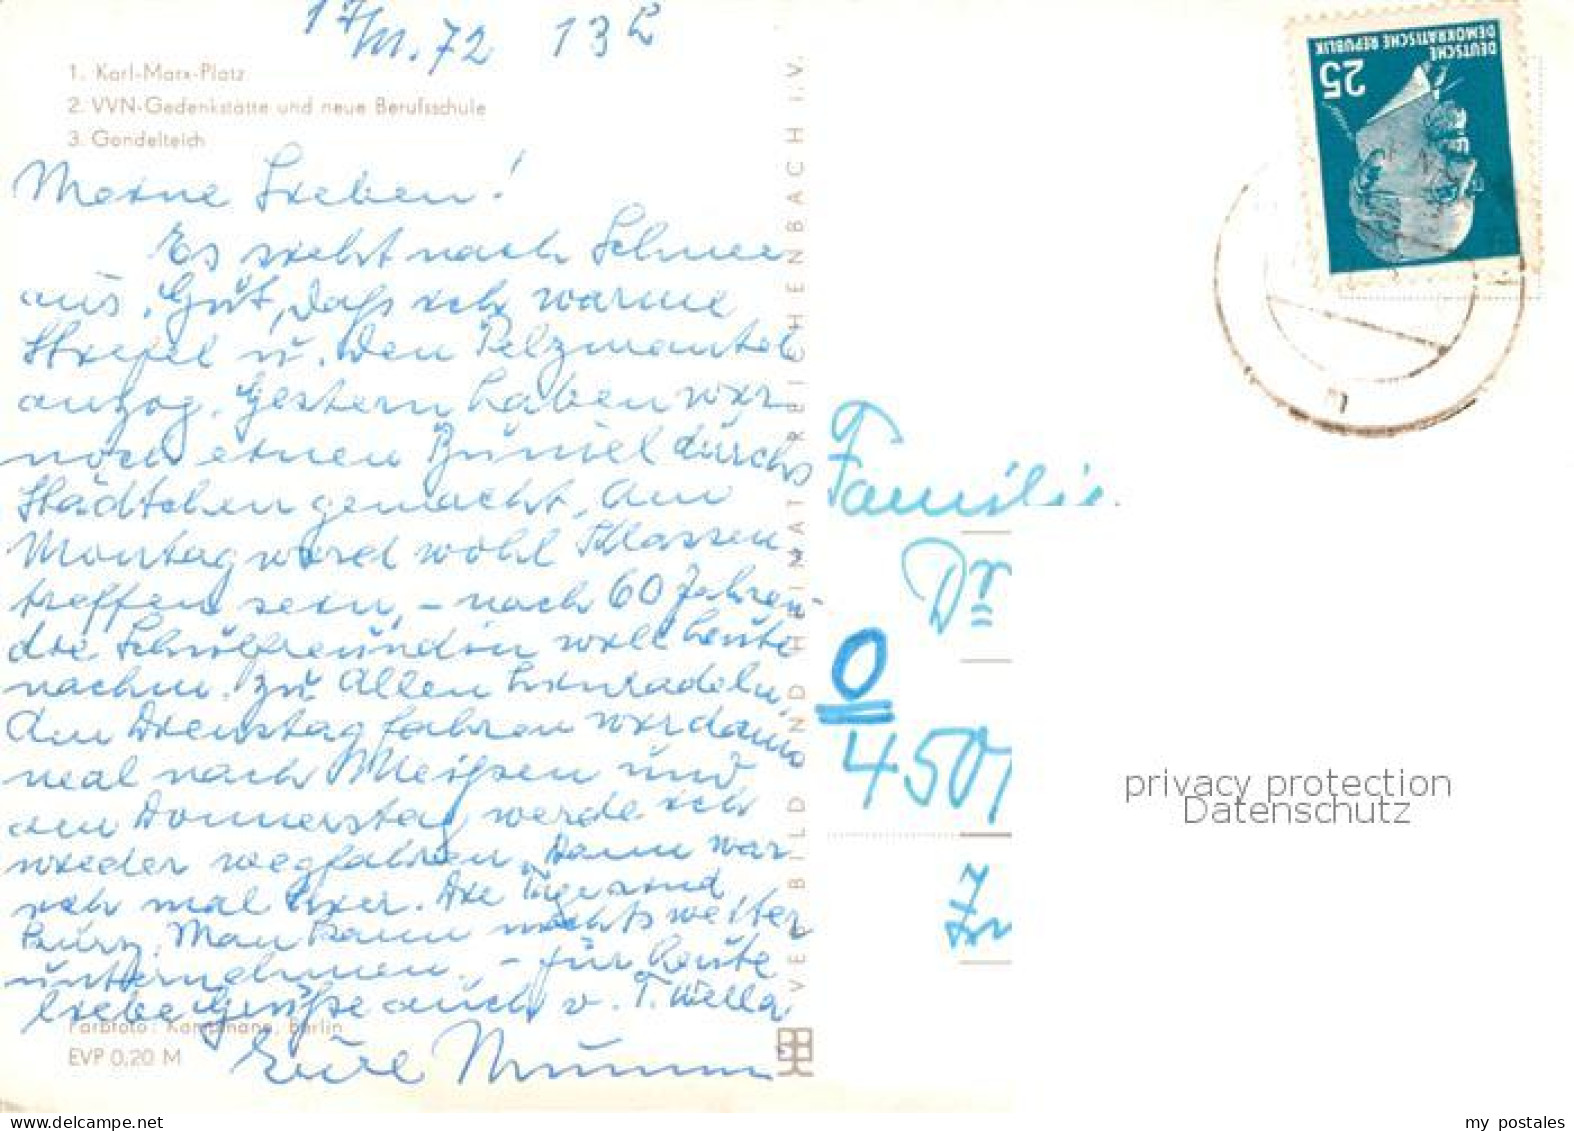 17/XI.72 13 h
1. Karl-Marx-Platz
2. VVN-Gedenkstätte und neue Berufsschule
3. Gondelteich
Meine Lieben!
Es sieht nach Schnee
aus. Gut, daß ich warme
Stiefel u. den Pelzmantel
anzog. Gestern haben wir
noch einen Bummel durchs
Städtchen gemacht. Am
Montag wird wohl Klassen
treffen sein, – nach 60 Jahren
die Schulfreundin will heute
nachm. zu Allen
Am Dienstag fahren wir dann
mal nach Meißen und
am Donnerstag werde ich
wieder wegfahren. Dann war
ich mal hier. Die Tage sind
kurz. Man kann nichts weiter
unternehmen. – für heute
liebe Grüße auch v. T. Wella
Eure Mumm
Farbfoto: Kampmann, Berlin
EVP 0,20 M
VEB BILD UND HEIMAT REICHENBACH i.V.
DEUTSCHE
DEMOKRATISCHE REPUBLIK
25
Familie
Dr
O
4507
privacy protection
Datenschutz
www.delcampe.net
my_postales